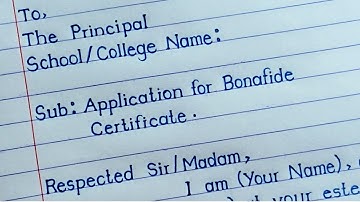 To,
The Principal
School/College Name:
Sub: Application for Bonafide
Certificate.
Respected Sir/Madam,
I am (Your Name),
your este